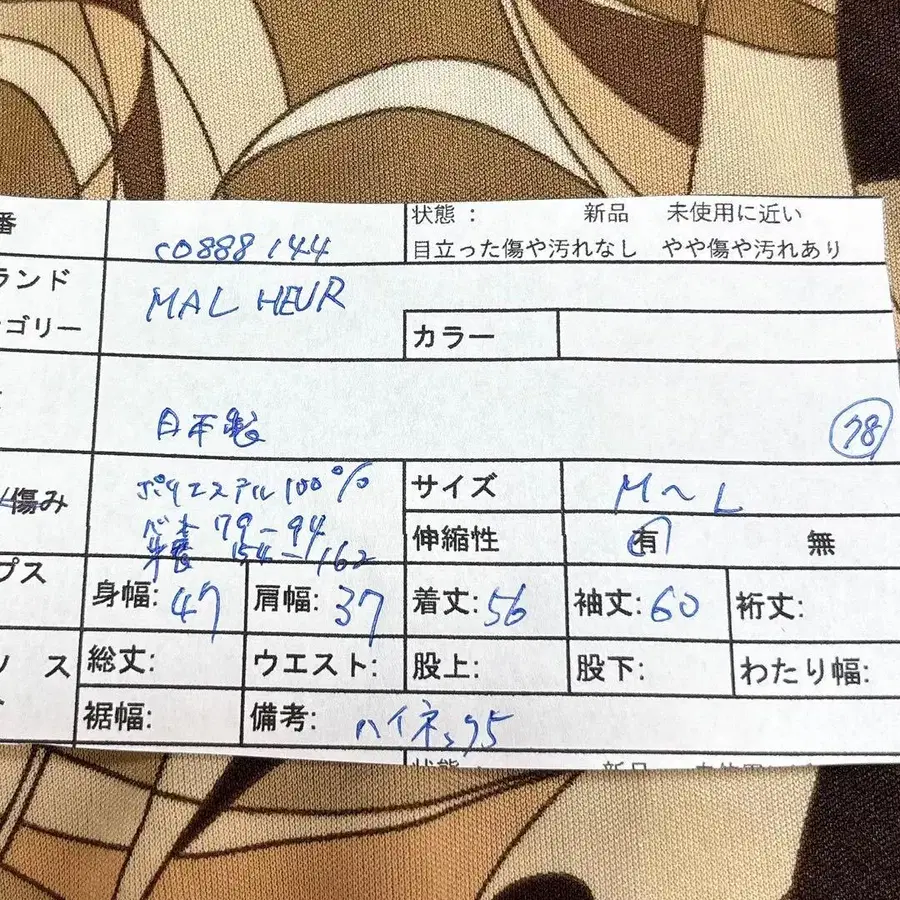 番 c0888144 状態： 新品 未使用に近い
目立った傷や汚れなし やや傷や汚れあり
ランド MAL HEUR
ゴリー カラー
日本製 78
傷み ポリエステル100% サイズ M〜L
79-94 伸縮性 有 無
154-162
プス
身幅: 47 肩幅: 37 着丈: 56 袖丈: 60 裄丈:
ス 総丈: ウエスト: 股上: 股下: わたり幅:
裾幅: 備考: ハイネック5